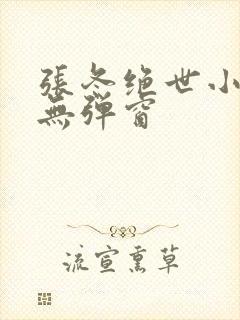 張冬绝世小
無弹窗
流宣熏草